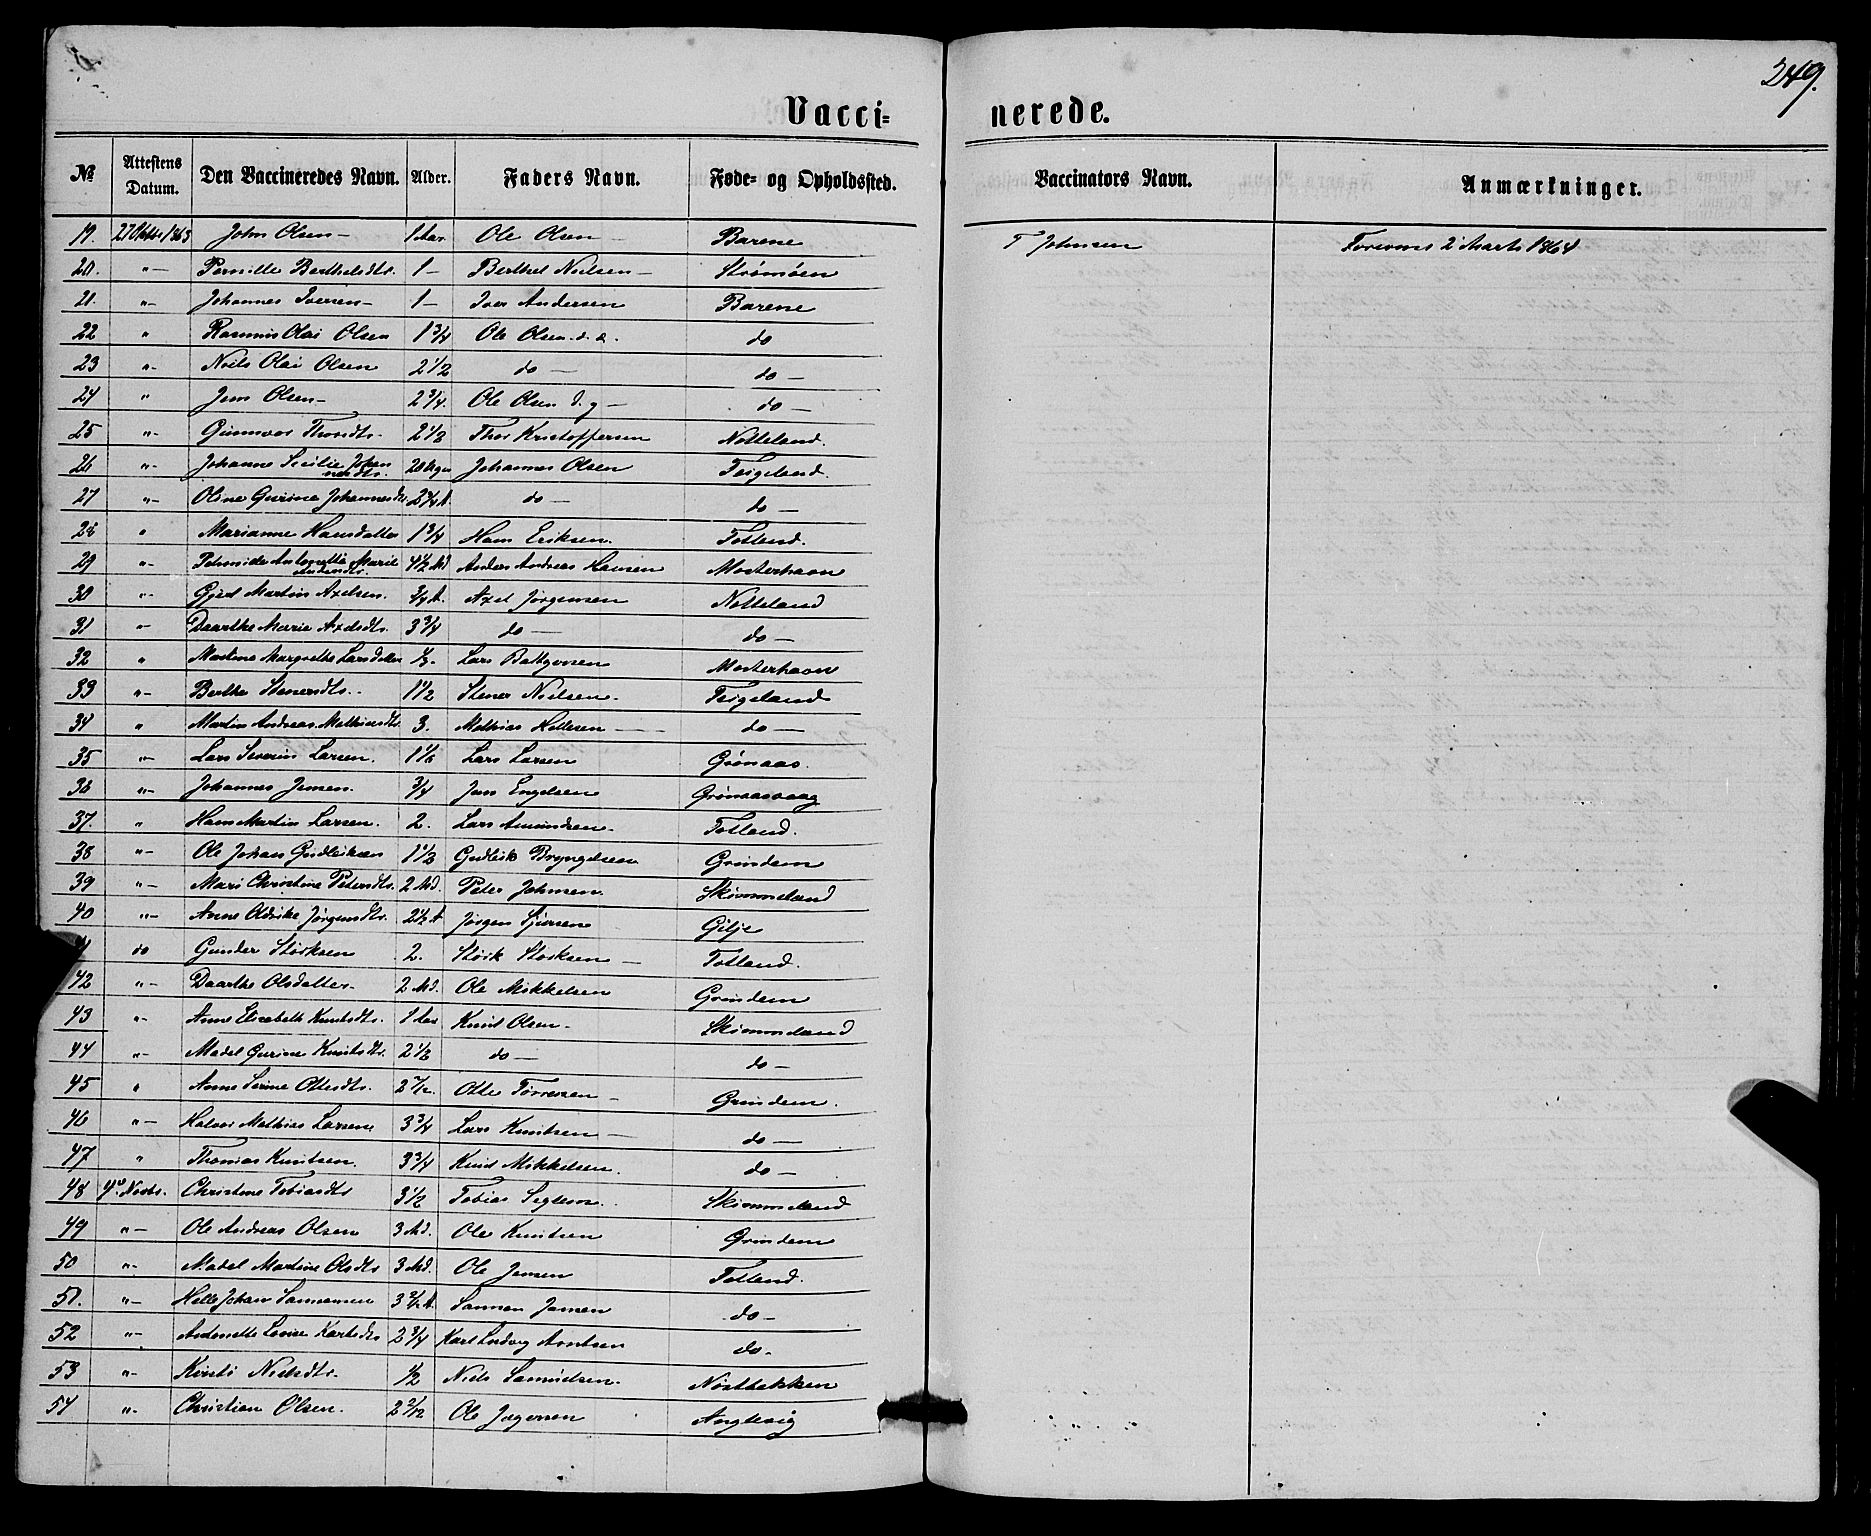 249.
Vacci= nerede.
№ Attestens Datum. Den Vaccineredes Navn. Alder. Faders Navn. Føde- og Opholdssted. Vaccinators Navn. Anmærkninger.
19. 27 Oktbr 1863 John Olsen - 1 Aar Ole Olsen - Barene T Johnsen 2 Marts 1864
20. "- Pernille Bertheldtr. 1- Berthel Nielsen - Strømøen
21. "- Johannes Iversen - 1- Iver Andersen Barene
22 " Rasmus Olai Olsen 1 3/4 Ole Olsen d. æ. do
23 "- Niels Olai Olsen 2 1/2 do - do -
24 " Jens Olsen - 2 3/4. Ole Olsen d. y - do -
25 "- Gunnvor Thorsdtr. 2 1/2 Thor Kristoffersen Notteland.
26 "- Johanne Secilie Johannesdtr. 20 Johannes Olsen Teigeland.
27 "- Oline Gurine Johannesdtr. 2 3/4 A. do - do -
28 " Marianne Hansdatter 1 3/4 Hans Eriksen. Totland.
29 "- Antonette Marie Andersdtr. 4 1/2 Md Anders Andreas Hansen Mosterhavn
30 "- Gjert Martin Axelsen. 3/4 A. Axel Jørgensen Notteland
31 "- Daarthe Marie Axelsdtr. 3 3/4 do - do -
32 " Martine Margrethe Larsdatter Lars Mosterhavn
33 "- Berthe Stenersdtr. 1 1/2 Stener Nielsen. Teigeland
34 " Martin Andreas Mathiasdtr. 3. Mathias Hellesen - do -
35 "- Lars Severin Larsen. 1 1/6 Lars Larsen Grønaas.
36 "- Johannes Jensen. 3/4 Jens Engelsen Grønaasvaag
37. " Hans Martin Larsen. 2. Lars Amundsen. Totland.
38 "- Ole Johan Gudleiksen 1 1/2 Gudleik Bryngelsen Grindem
39 "- Mari Christine Petersdtr. 2 Md. Peter Johnsen. Skimmeland
40 "- Anne Jørgensdtr. 2 1/2 A Jørgen Sjursen Gilje
41 do Gunder Størksen 2. Størk Størksen - Totland.
42 "- Daarthe Olsdatter 2 Md. Ole Mikkelsen Grindem
43 "- Anne Elisabeth Knutsdtr. 1 Aar Knut Olsen - Skimmeland
44 "- Madel Gurine Knutsdtr. 2 1/2 do - do -
45 " Anne Serine Ottesdtr. 2 7/12. Otte Tørresen - Grindem.
46 "- Halvor Mathias Larsen 3 3/4 Lars Knutsen - do -
47 " Thomas Knutsen. 3 3/4 Knut Mikkelsen. do -
48 4de Novbr. Christine Tobiasdtr 3 1/2 Tobias Skimmeland
49 "- Ole Andreas Olsen 3 Md. Ole Knutsen Grindem
50 "- Madel Martine Olsdtr 3 Md. Ole Jensen Totland.
51. "- Helle Johan 3 A. Jansen do -
52 "- Antonette Karlsdtr 2 3/4 Karl Ludvig Arntsen do -
53 "- Kirsti Nielsdtr. 1/2 Niels Samuelsen. Nørtbakken
54 "- Christian Olsen. 2 2/12 Ole